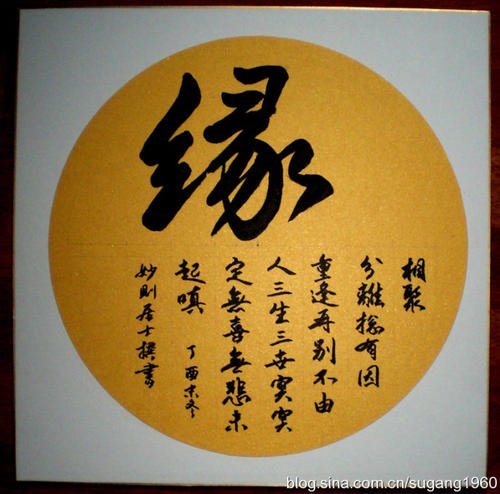 緣
相聚
分離總有因
重逢再別不由
人三生三世冥冥
定無喜無悲未
起嗔
丁酉末冬
妙則居士撰書
blog.sina.com.cn/sugang1960